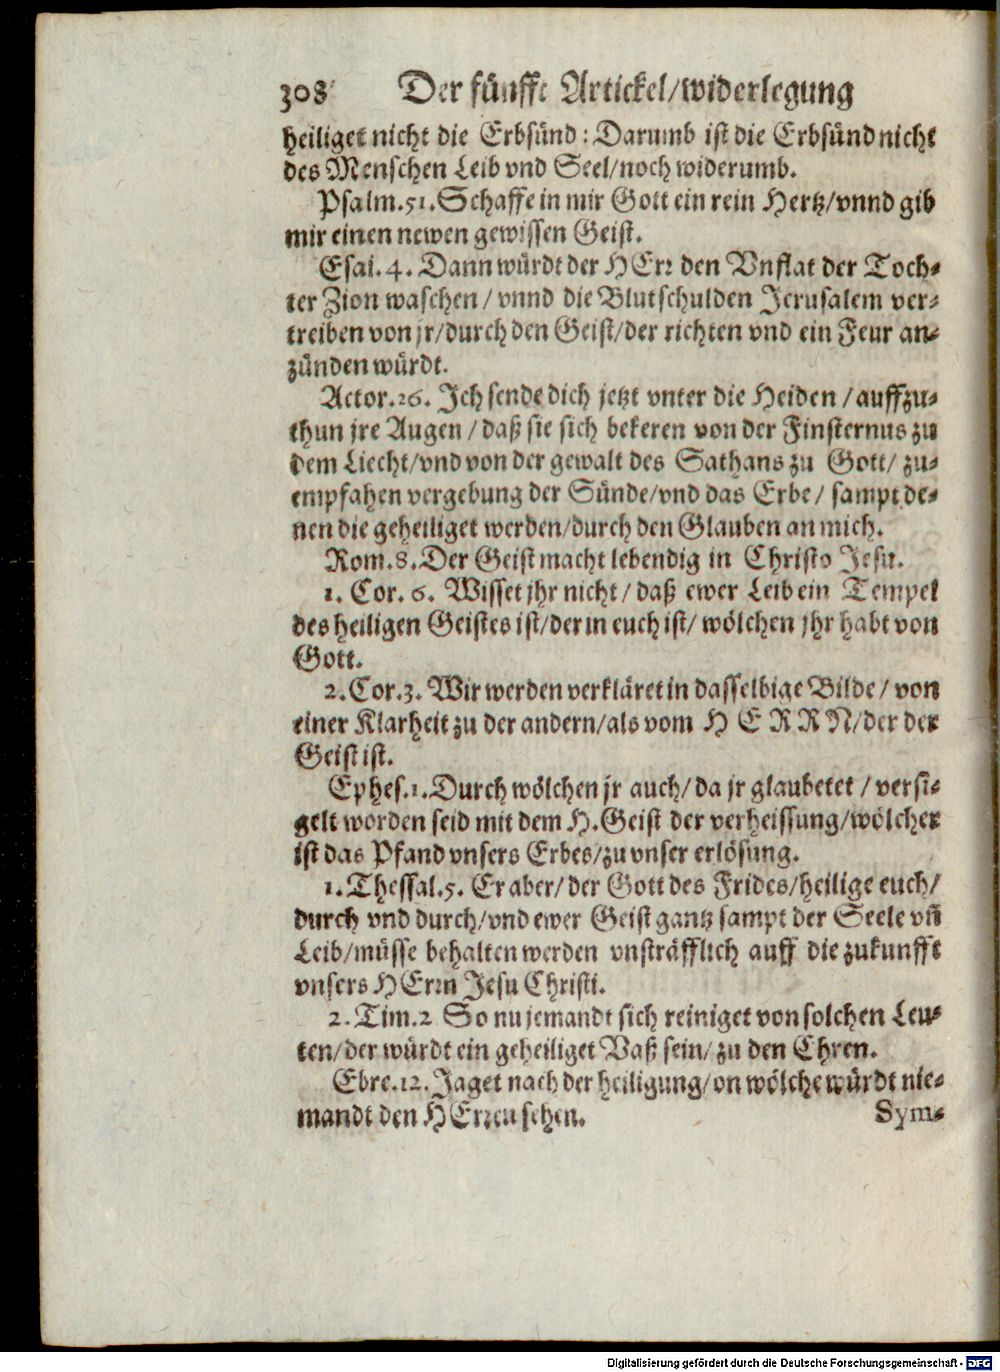 308 Der fünfft Artickel/widerlegung
heiliget nicht die Erbsünd: Darumb ist die Erbsünd nicht
des Menschen Leib vnd Seel/noch widerumb.
Psalm.51. Schaffe in mir Gott ein rein Hertz/vnnd gib
mir einen newen gewissen Geist.
Esai. 4. Dann würdt der HErr den Vnflat der Toch-
ter Zion waschen / vnnd die Blutschulden Jerusalem ver-
treiben von jr/durch den Geist/der richten vnd ein Feur an-
zünden würdt.
Actor.26. Ich sende dich jetzt vnter die Heiden / auffzu-
thun jre Augen / daß sie sich bekeren von der Finsternus zu
dem Liecht/vnd von der gewalt des Sathans zu Gott/ zu-
empfahen vergebung der Sünde/vnd das Erbe/ sampt de-
nen die geheiliget werden/durch den Glauben an mich.
Rom.8. Der Geist macht lebendig in Christo Jesu.
1. Cor. 6. Wisset jhr nicht / daß ewer Leib ein Tempel
des heiligen Geistes ist/der in euch ist/ wölchen jhr habt von
Gott.
2.Cor.3. Wir werden verkläret in dasselbige Bilde/ von
einer Klarheit zu der andern/als vom HERRN/der der
Geist ist.
Ephes.1.Durch wölchen jr auch/ da jr glaubetet / versi-
gelt worden seid mit dem H.Geist der verheissung/wölcher
ist das Pfand vnsers Erbes/zu vnser erlösung.
1.Thessal.5. Er aber/der Gott des Frides/heilige euch/
durch vnd durch/vnd ewer Geist gantz sampt der Seele vñ
Leib/müsse behalten werden vnsträfflich auff die zukunfft
vnsers HErrn Jesu Christi.
2.Tim.2 So nu jemandt sich reiniget von solchen Leu-
ten/der würdt ein geheiliget Vaß sein/ zu den Ehren.
Ebre.12. Jaget nach der heiligung/on wölche würdt nie-
mandt den HErren sehen. Sym-
Digitalisierung gefördert durch die Deutsche Forschungsgemeinschaft - DFG